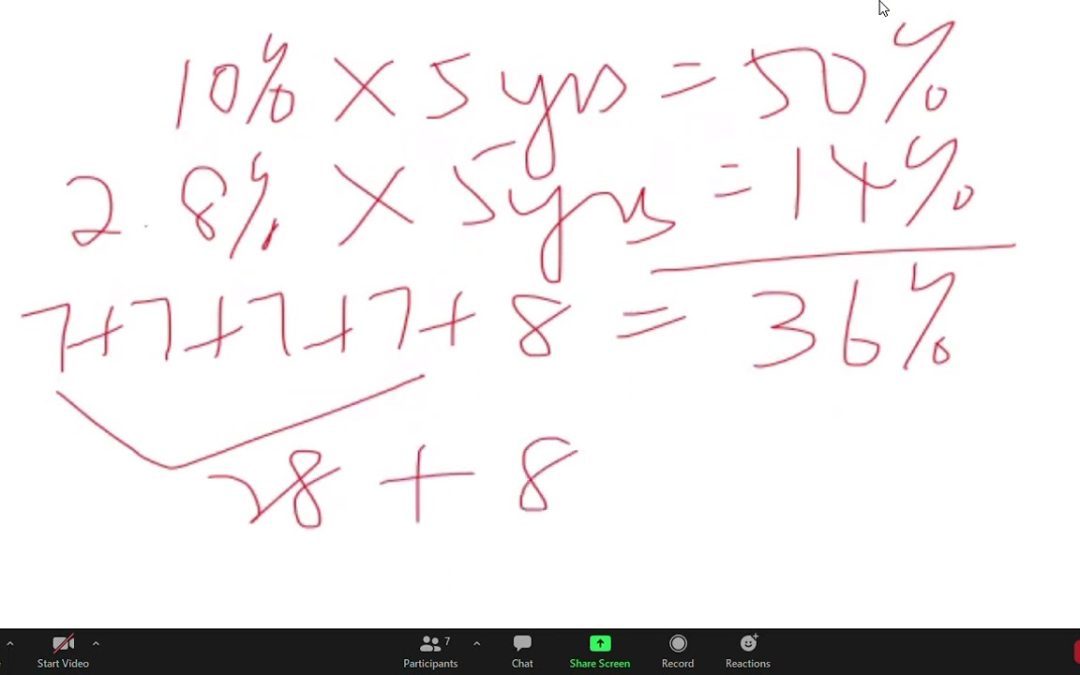 10% × 5 yrs = 50%
2.8% × 5yrs = 14%
7+7+7+7+8 = 36%
28 + 8
7
Start Video
Participants
Chat
Share Screen
Record
Reactions